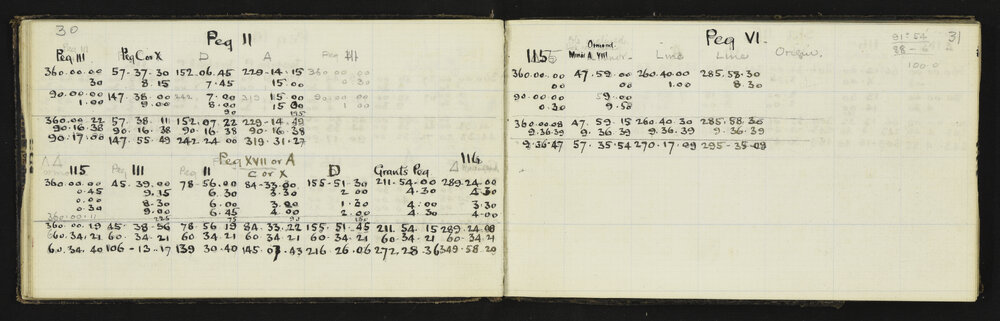 30
Peg II
Peg III Peg C or X D A Peg III
360.00.00 57-37-30 152.06.45 229-14-15 360 00 00
30 8.15 7.45 15.00 0 30
90.00.00 147.38.00 242 7.00 319 15.00 90.00.00
1.00 9.00 8.00 15 00 1 00
90 195
360.00.22 57.38.11 152.07.22 229-14-49
90.16.38 90.16.38 90.16.38 90.16.38
90.17.00 147.55.49 242.24.00 319.31.27
Peg XVII or A
115 Peg III Peg II C or X D Grants Peg 116
360.00.00 45.39.00 78-56.00 84-33.00 155-51.30 211.54-00 289.24.00
0.45 9.15 6.30 3.30 2.00 4.30 4.30
0.00 8.30 6.00 3.20 1.30 4.00 3.30
0.30 9.00 6.45 4.00 2.00 4.30 4.00
360.00.11 225 75 90 180
360.00.19 45.38.56 78 56 19 84.33.22 155.51.45 211.54.15 289.24.00
60.34.21 60 34.21 60 34 21 60 34.21 60 34.21 60.34.21 60.34.21
60.34.40 106-13-17 139 30.40 145.07.43 216.26.06 272.28.36 349.58.20
31
Peg VI.
91:54
88-6
100-0
115 Ormond Line Line Origin.
Minr A VIII
360.00.00 47.59.00 260.40.00 285.58.30
00 00 1.00 8.30
90.00.00 59.00
0.30 9.50
360.00.08 47.59.15 260.40.30 285.58.30
9.36.39 9.36.39 9.36.39 9.36.39
9.36.47 57.35.54 270.17.09 295-35-09